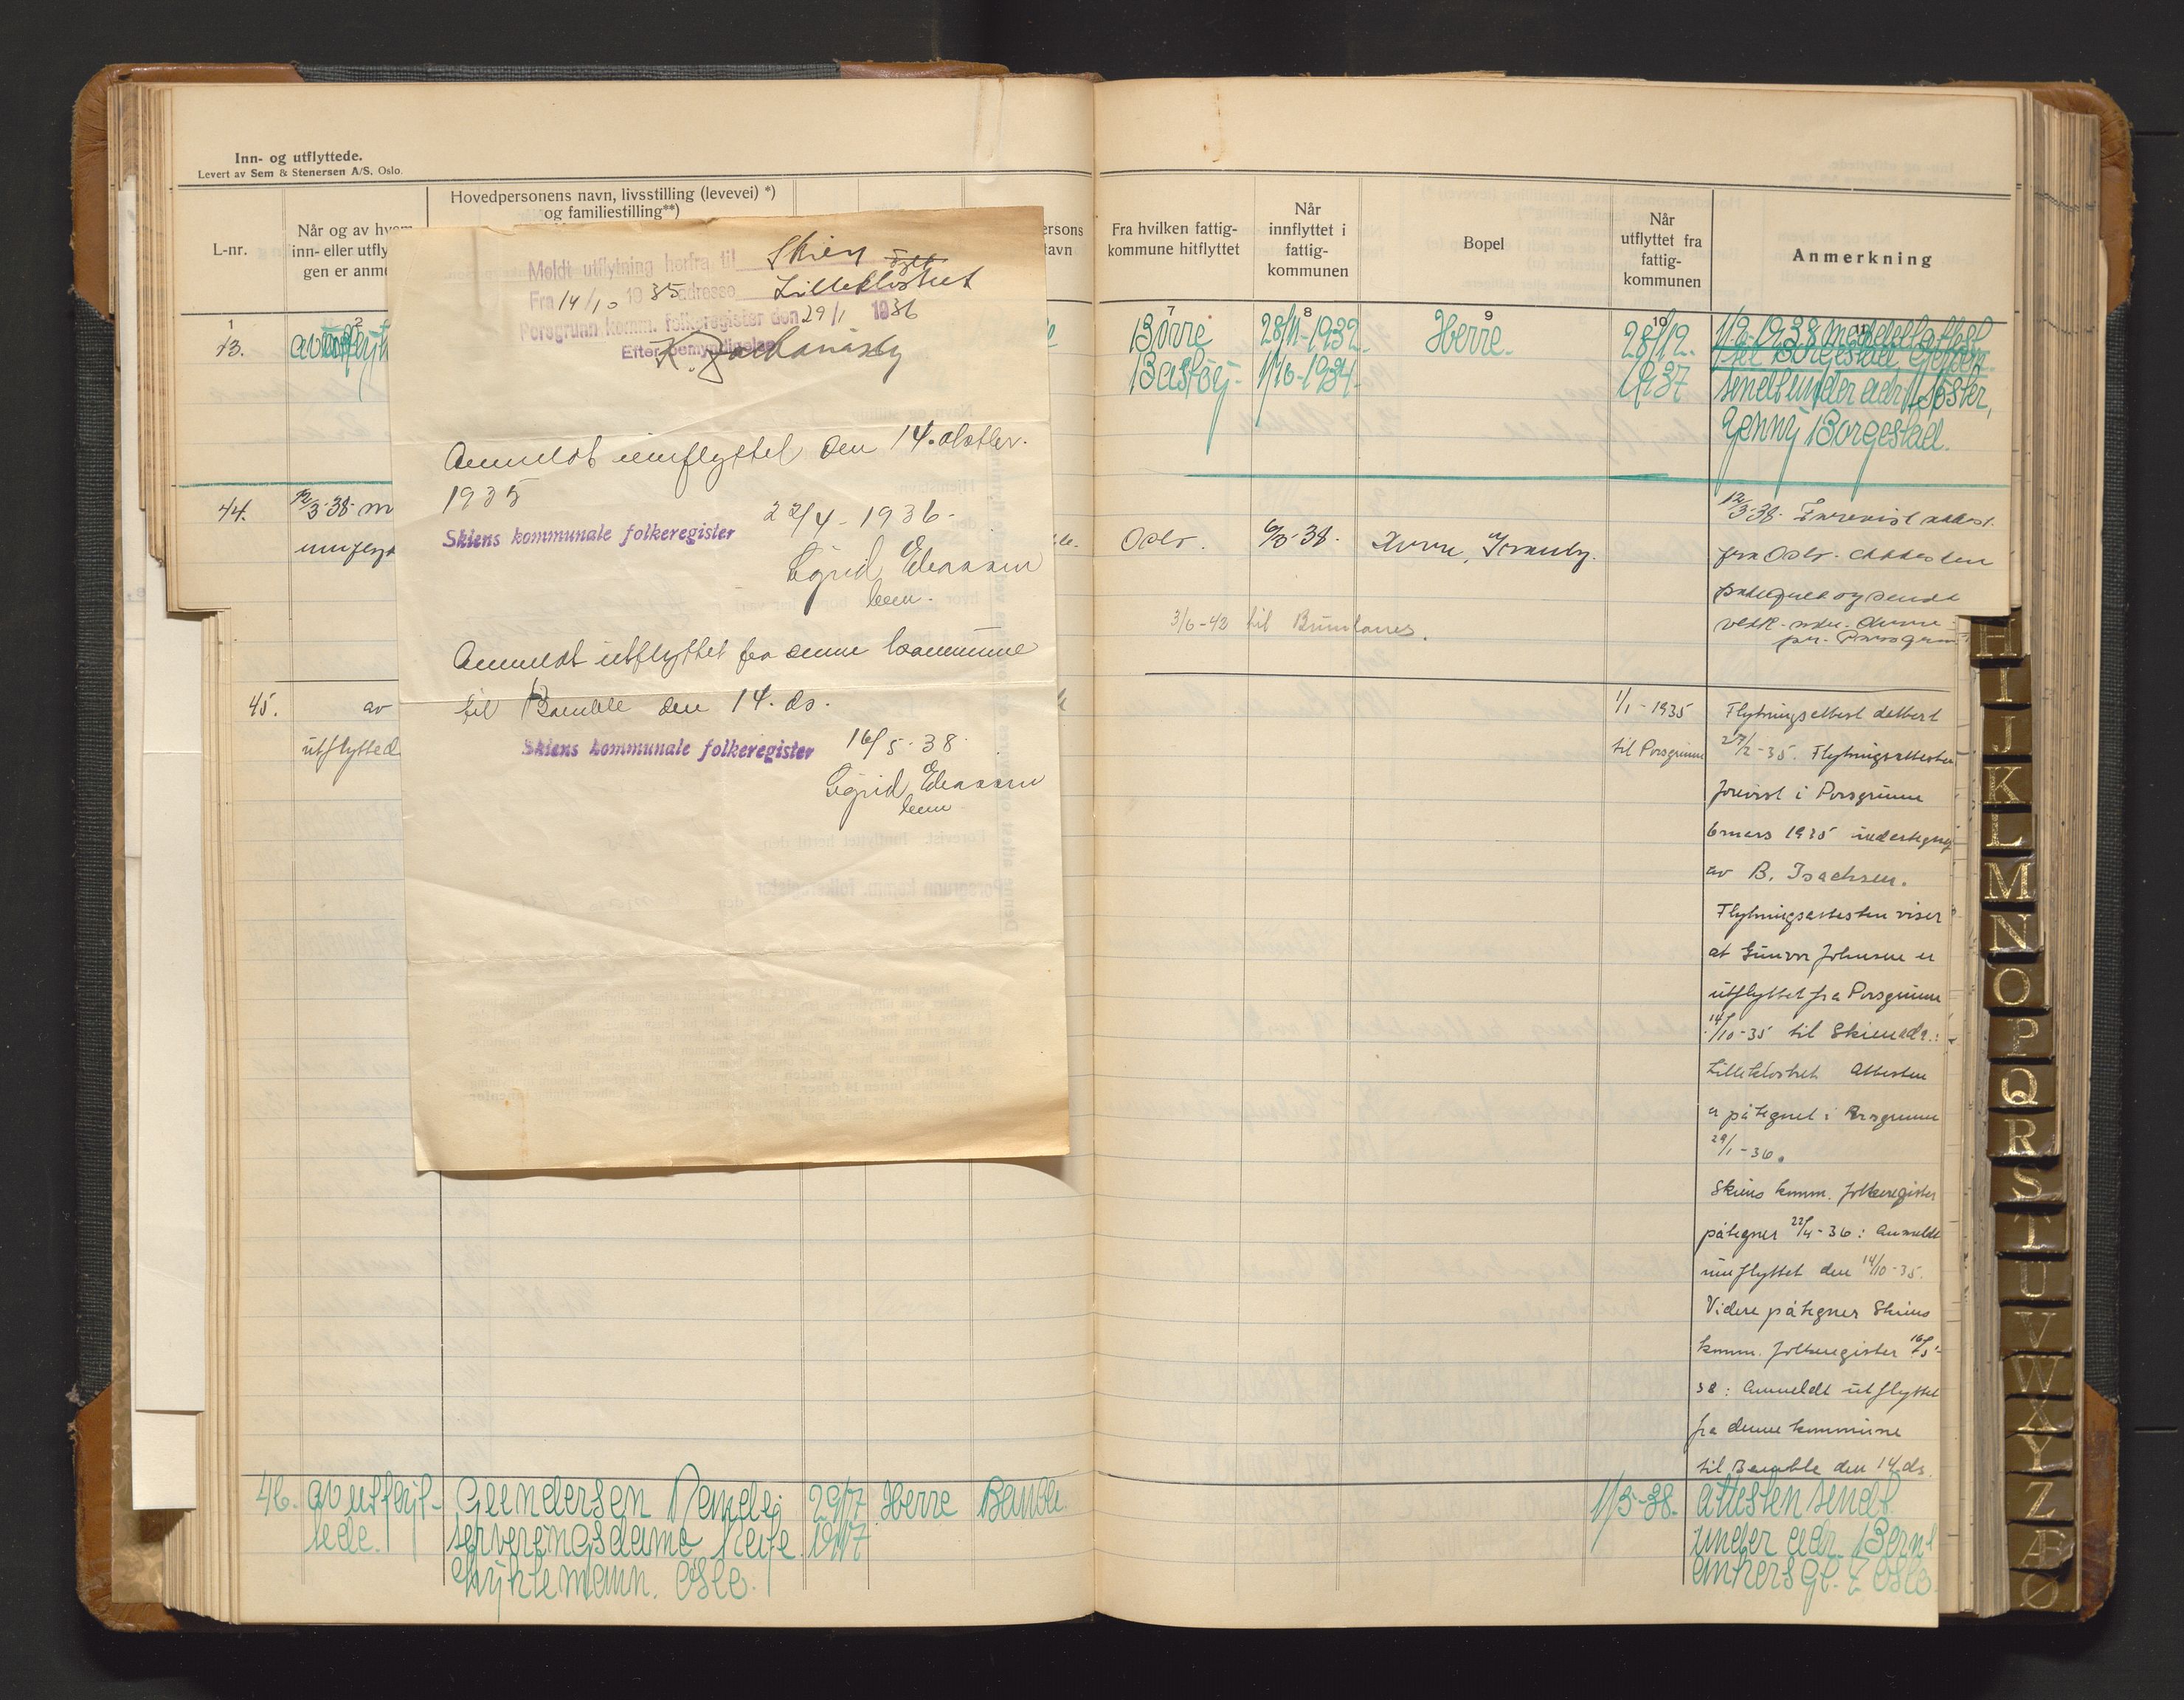 Inn- og utflyttede.
Levert av Sem & Stenersen A/S, Oslo.
L-nr.
Når og av hvem
inn- eller utfly
gen er anme
Hovedpersonens navn, livsstilling (levevei) *)
og familiestilling**)
1
2
13.
44.
12/3-38 m
innflyt
45.
av
utflytted
46.
av utflyt-
tede.
Gundersen
serveringsdame
Oslo.
29/7
1917
Herre
Bamble
Meldt utflytning herfra til Skien
Fra 14/10 1935 adresse Lilleklostret
Porsgrunn komm. folkeregister den 29/1 1936
Efter bemyndigelse
Anmeldt innflyttet den 14. oktbr.
1935
22/4-1936-
Skiens kommunale folkeregister
Sigrid
Anmeldt utflyttet fra denne kommune
til Bamble den 14. ds.
16/5-38
Skiens kommunale folkeregister
Sigrid
ersons
avn
Fra hvilken fattig-
kommune hitflyttet
Når
innflyttet i
fattig-
kommunen
Bopel
Når
utflyttet fra
fattig-
kommunen
Anmerkning
7
8
9
10
11
Borre
28/11-1932
Herre.
28/12.
1937
Bastøy-
1/10-1934-
sendt under adr. Søster,
Jenny Borgestad.
Oslo.
6/3-38.
Herre,
12/3-38.
fra Oslo. Attesten
påtegnet og sendt
3/6-42 til Brunlanes.
1/1-1935
til Porsgrunn
Flytningsattest datert
27/2-35. Flytningsattesten
forevist i Porsgrunn
6 mars 1935 undertegnet
av B. Isachsen.
Flytningsattesten viser
at Gunvor Johnsen er
utflyttet fra Porsgrunn
14/10-35 til Skien adr.:
Lilleklostret Attesten
er påtegnet i Porsgrunn
29/1-36.
Skiens komm. folkeregister
påtegner 22/4-36: Anmeldt
innflyttet den 14/10-35.
Videre påtegner Skiens
komm. folkeregister 16/5-
38: Anmeldt utflyttet
fra denne kommune
til Bamble den 14 ds.
1/3-38.
Attesten sendt
under adr. Bernt
Ankers gt. 7 Oslo.
H
I
J
K
L
M
N
O
P
Q
R
S
T
U
V
W
X
Y
Z
Æ
Ø